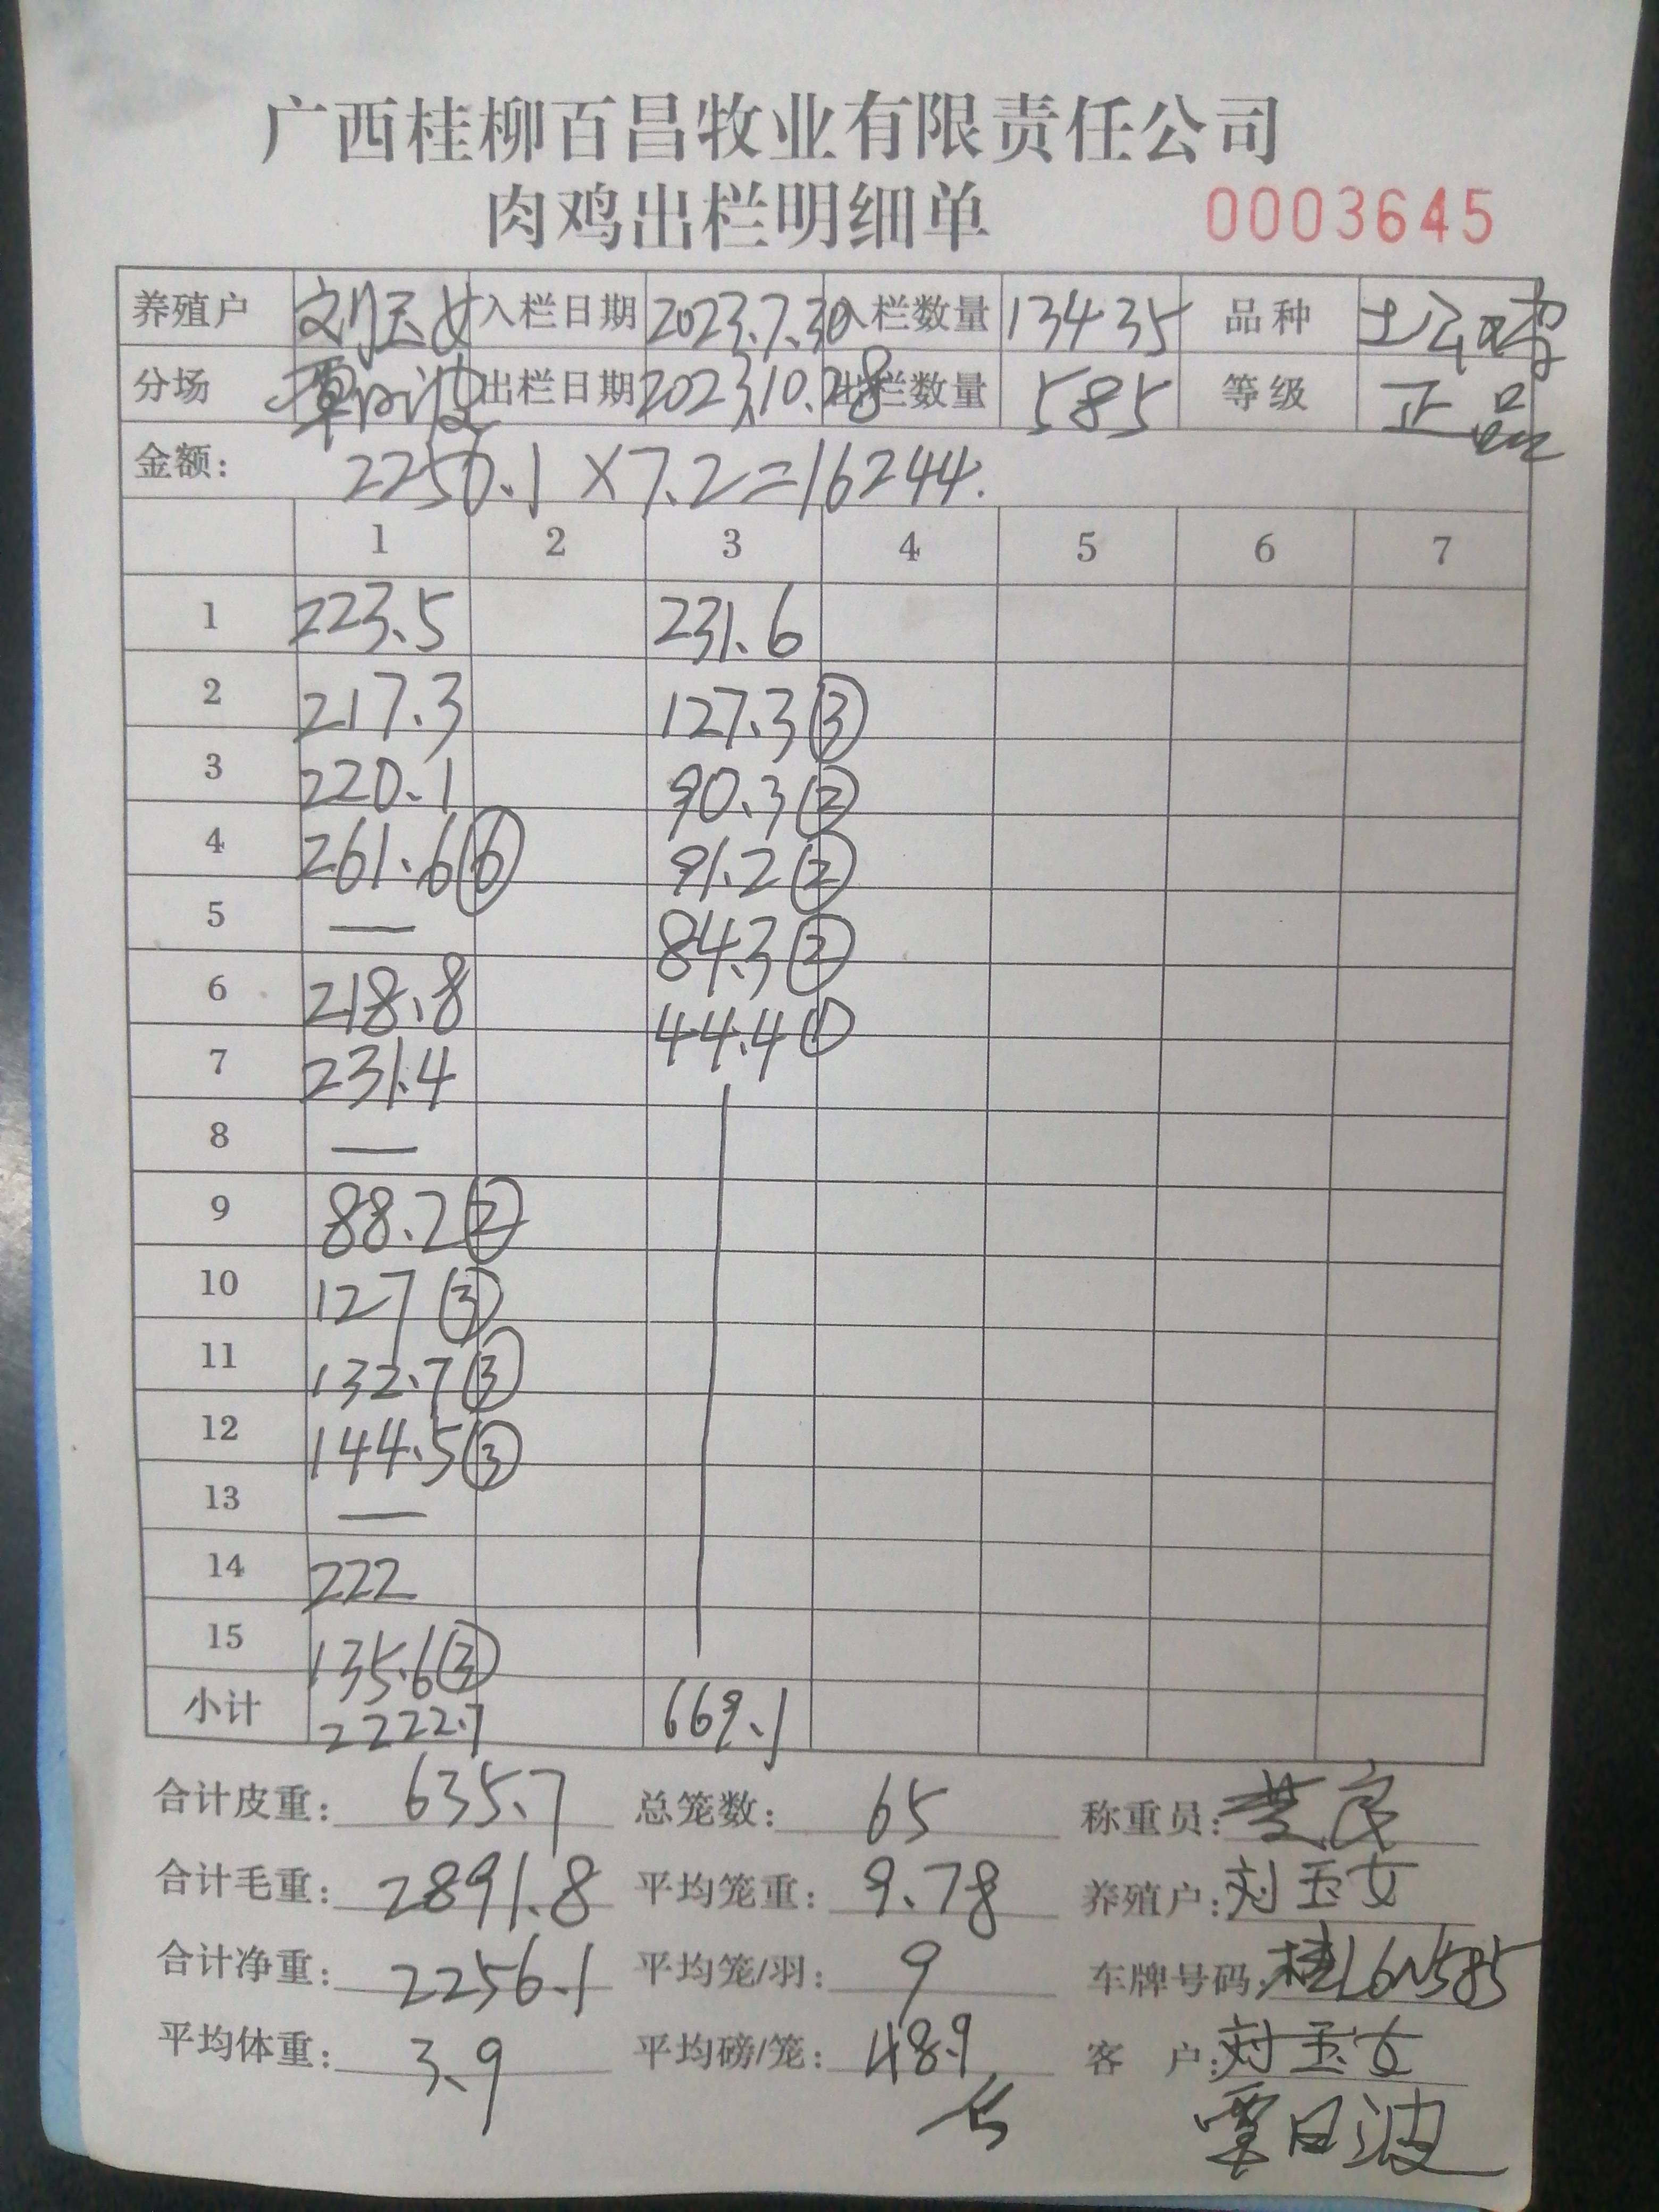 广西桂柳百昌牧业有限责任公司
肉鸡出栏明细单 0003645
养殖户 刘玉女 入栏日期 2023.7.30 入栏数量 13435 品种 土公鸡
分场 覃日波 出栏日期 2023.10.28 出栏数量 585 等级 正品
金额: 2256.1×7.2=16244.
1 2 3 4 5 6 7
1 223.5 231.6
2 217.3 127.3③
3 220.1 90.3②
4 261.6⑥ 91.2②
5 — 84.3②
6 218.8 44.4①
7 231.4
8 —
9 88.2②
10 127③
11 132.7③
12 144.5③
13 —
14 222
15 135.6③
小计 2222.7 669.1
合计皮重: 635.7 总笼数: 65 称重员:
合计毛重: 2891.8 平均笼重: 9.78 养殖户: 刘玉女
合计净重: 2256.1 平均笼/羽: 9 车牌号码: 桂L6N585
平均体重: 3.9 平均磅/笼: 48.9 客 户: 刘玉女
覃日波